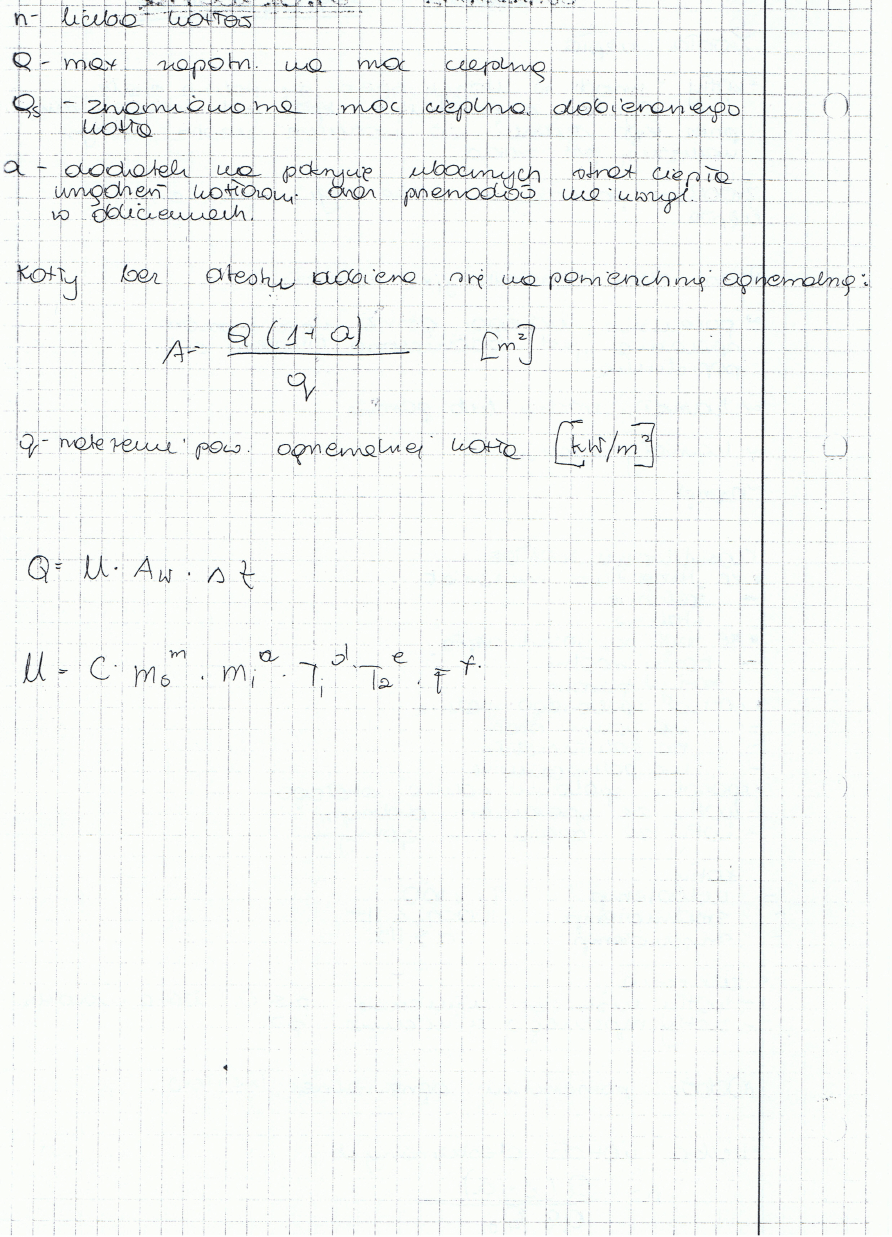 n - liczba kotłów
Q - max zapotrz. na moc cieplną
Qś - znamionowa moc cieplna dobieranego
kotła
a - dodatek na pokrycie ubocznych strat ciepła
urządzeń kotłown. oraz przewodów nie uwzgl.
w obliczeniach.
Kotły bez atestu dobiera się na powierzchnię ogrzewalną:
A = Q (1 + a) / q [m²]
q - natężenie pow. ogrzewalnej kotła [kW/m²]
Q = U · Aw · Δt